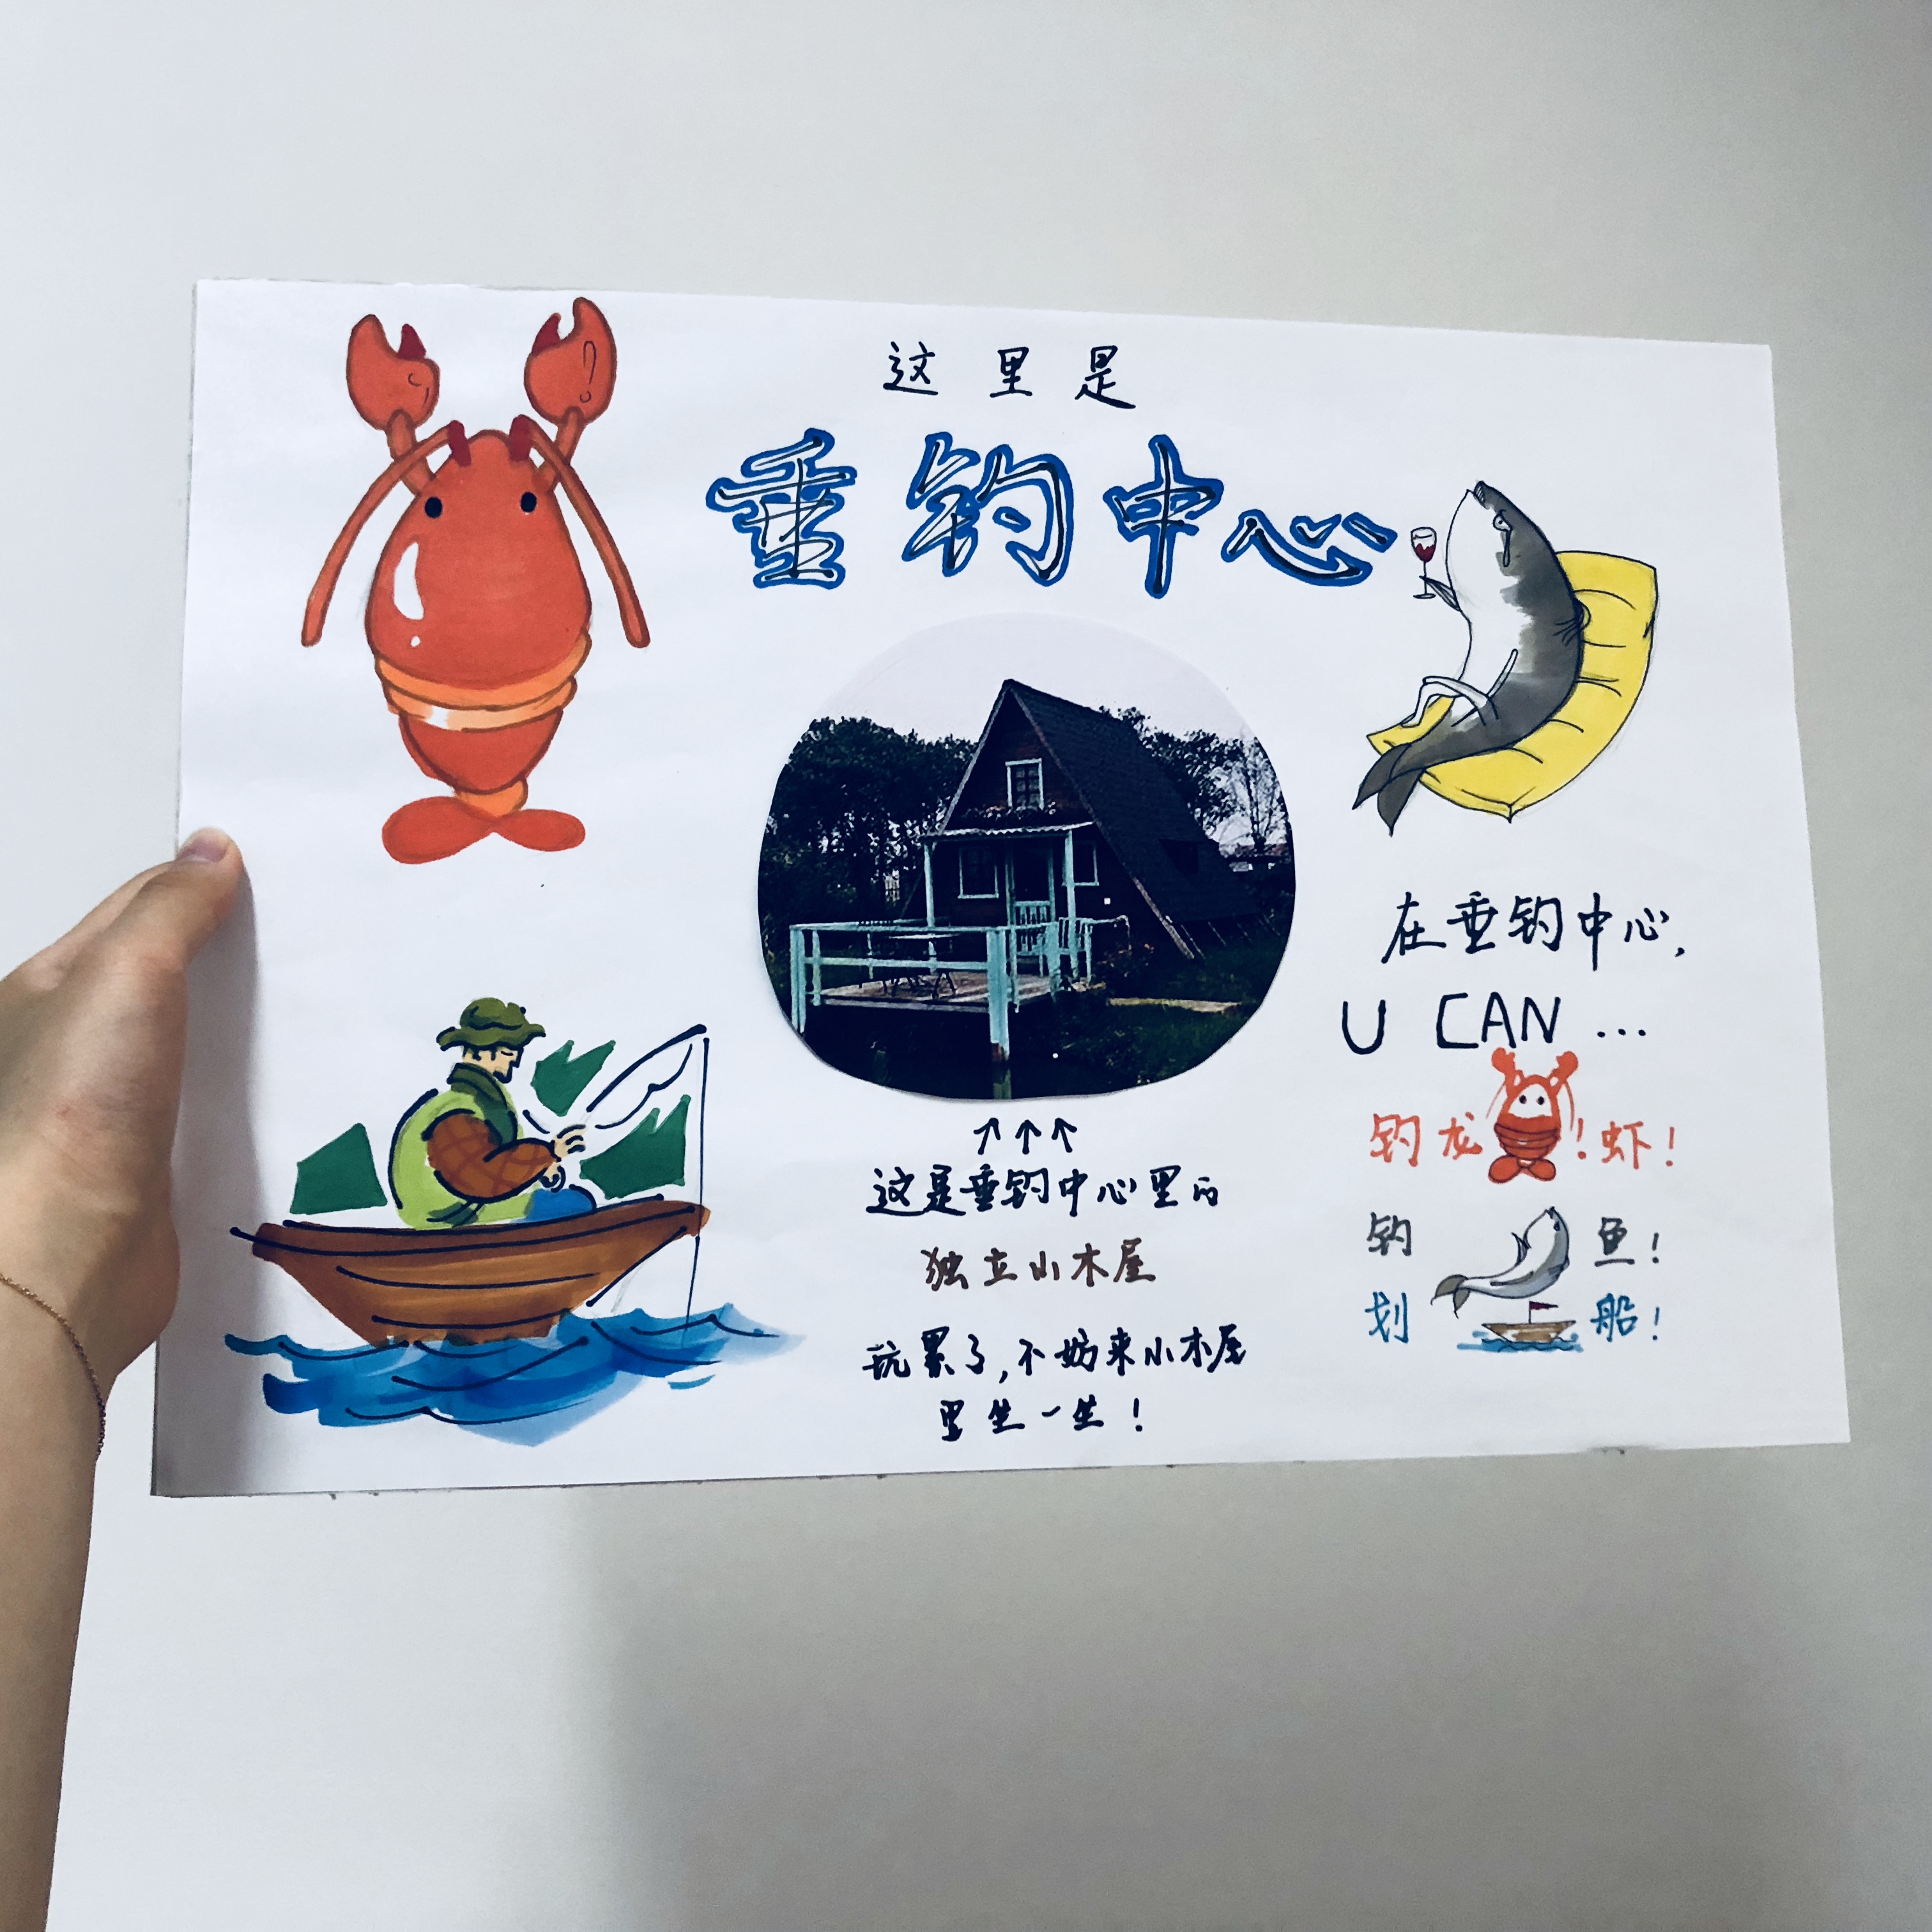 这里是
垂钓中心
↑↑↑
这是垂钓中心里的
独立小木屋
玩累了,不妨来小木屋
里坐一坐!
在垂钓中心,
U CAN ...
钓龙!虾!
钓鱼!
划船!